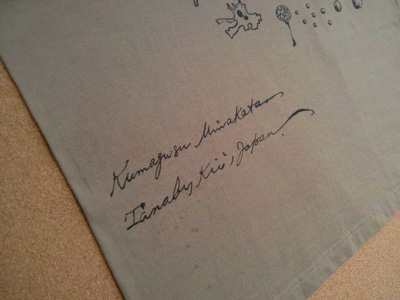 Kumagusu Minakata
Tanabe, Kii, Japan.